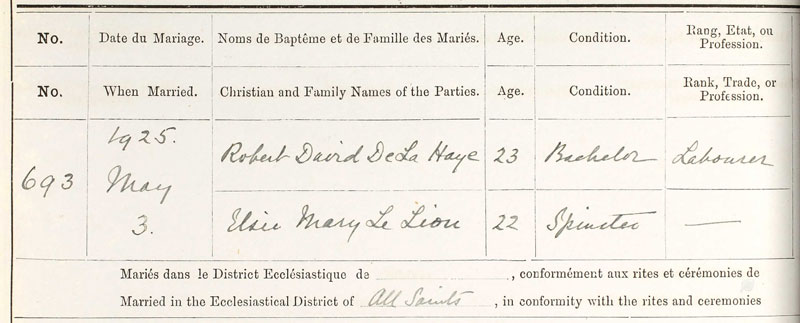 No. Date du Mariage. Noms de Baptême et de Famille des Mariés. Age. Condition. Rang, Etat, ou Profession.
No. When Married. Christian and Family Names of the Parties. Age. Condition. Rank, Trade, or Profession.
1925.
Robert David De La Haye 23 Bachelor Labourer
693 May
3. Elsie Mary Le Lion 22 Spinster —
Mariés dans le District Ecclésiastique de , conformément aux rites et cérémonies de
Married in the Ecclesiastical District of All Saints , in conformity with the rites and ceremonies